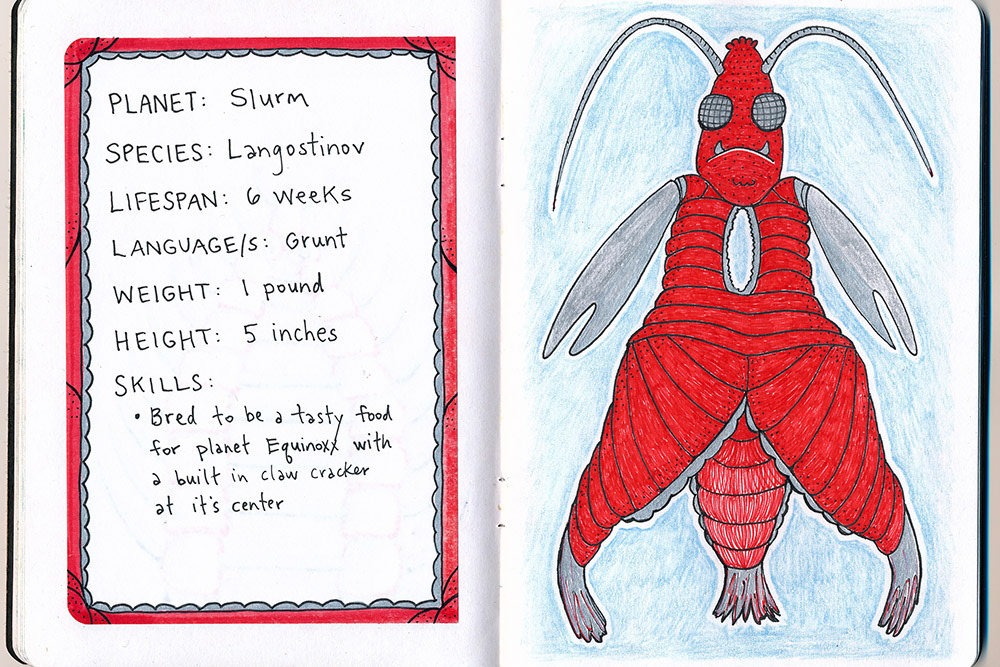 PLANET: Slurm
SPECIES: Langostinov
LIFESPAN: 6 weeks
LANGUAGE/S: Grunt
WEIGHT: 1 pound
HEIGHT: 5 inches
SKILLS:
• Bred to be a tasty food
for planet Equinoxx with
a built in claw cracker
at it's center